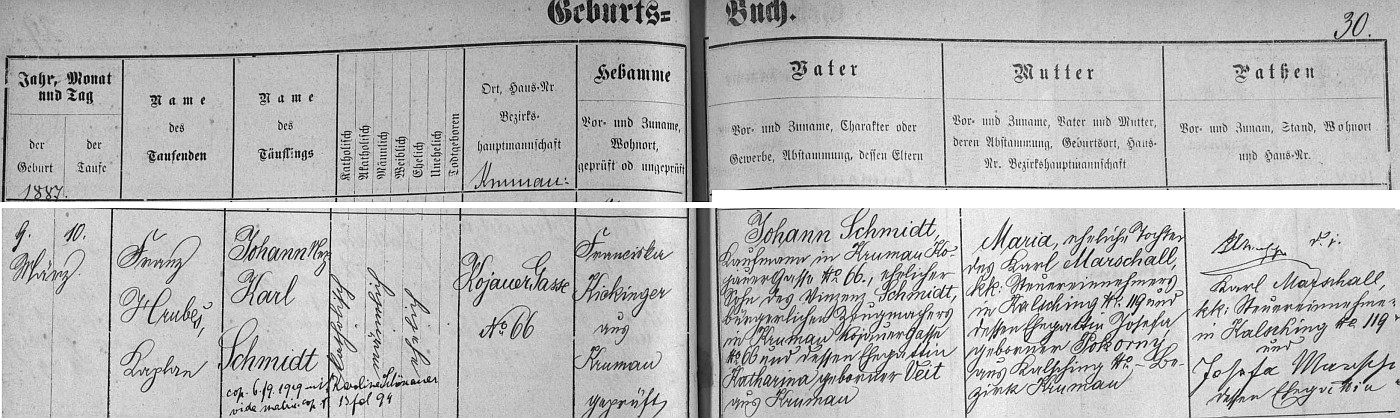 Geburts= Buch.
30.
Jahr, Monat und Tag
der Geburt
der Taufe
1887.
Name des Taufenden
Name des Täuflings
Katholisch
Akatholisch
Männlich
Weiblich
Ehelich
Unehelich
Todtgeboren
Ort, Haus-Nr
Bezirks-
hauptmannschaft
Krumau.
Hebamme
Vor- und Zuname,
Wohnort,
geprüft od ungeprüft
Vater
Vor- und Zuname, Charakter oder
Gewerbe, Abstammung, dessen Eltern
Mutter
Vor- und Zuname, Vater und Mutter,
deren Abstammung, Geburtsort, Haus-
Nr. Bezirkshauptmannschaft
Pathen
Vor- und Zunam, Stand, Wohnort
und Haus-Nr.
9. 10.
März.
Franz
Hrubeš,
Kaplan
Johann
Karl
Schmidt
cop. 6./9. 1919 mit Karoline
vide matric. cop. 13 fol 94
Kojauer Gasse
No 66
Franciska
Kickinger
aus
Krumau
geprüft
Johann Schmidt,
Kaufmann in Krumau Ko-
jauerGasse No 66., ehelicher
Sohn des Vinzenz Schmidt,
bürgerlichen Zeugmachers
in Krumau KojauerGasse
No 66 und dessen Ehegattin
Katharina geborner Veit
aus Krumau
Maria, eheliche Tochter
des Karl Marschall,
kk: Steuereinnehmers
in Kalsching No. 119 und
dessen Ehegattin Josefa
geborner Pokorny
aus Kalsching No. – Be-
zirk Krumau
Karl Marschall,
kk: Steuereinnehmer
in Kalsching No. 119
und
Josefa Marsch
dessen Ehegattin